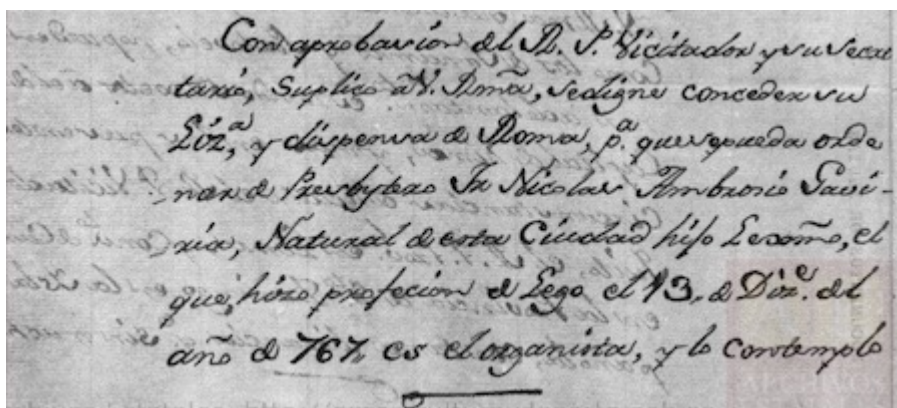 Con aprobacion del R. P. Vicitador y su Secre
tario, Suplico a V. Rmã, se digne conceder su
Liz.ª, y dispensa de Roma, p.ª que se pueda orde
nar de Presbytero Fr Nicolas Ambrosio Gavi-
ria, Natural de esta Ciudad hijo Lexmõ, el
que, hizo profecion de Lego el 13. de Diz.e del
año de 767, es el organista, y lo contemplo
ARCHIVOS